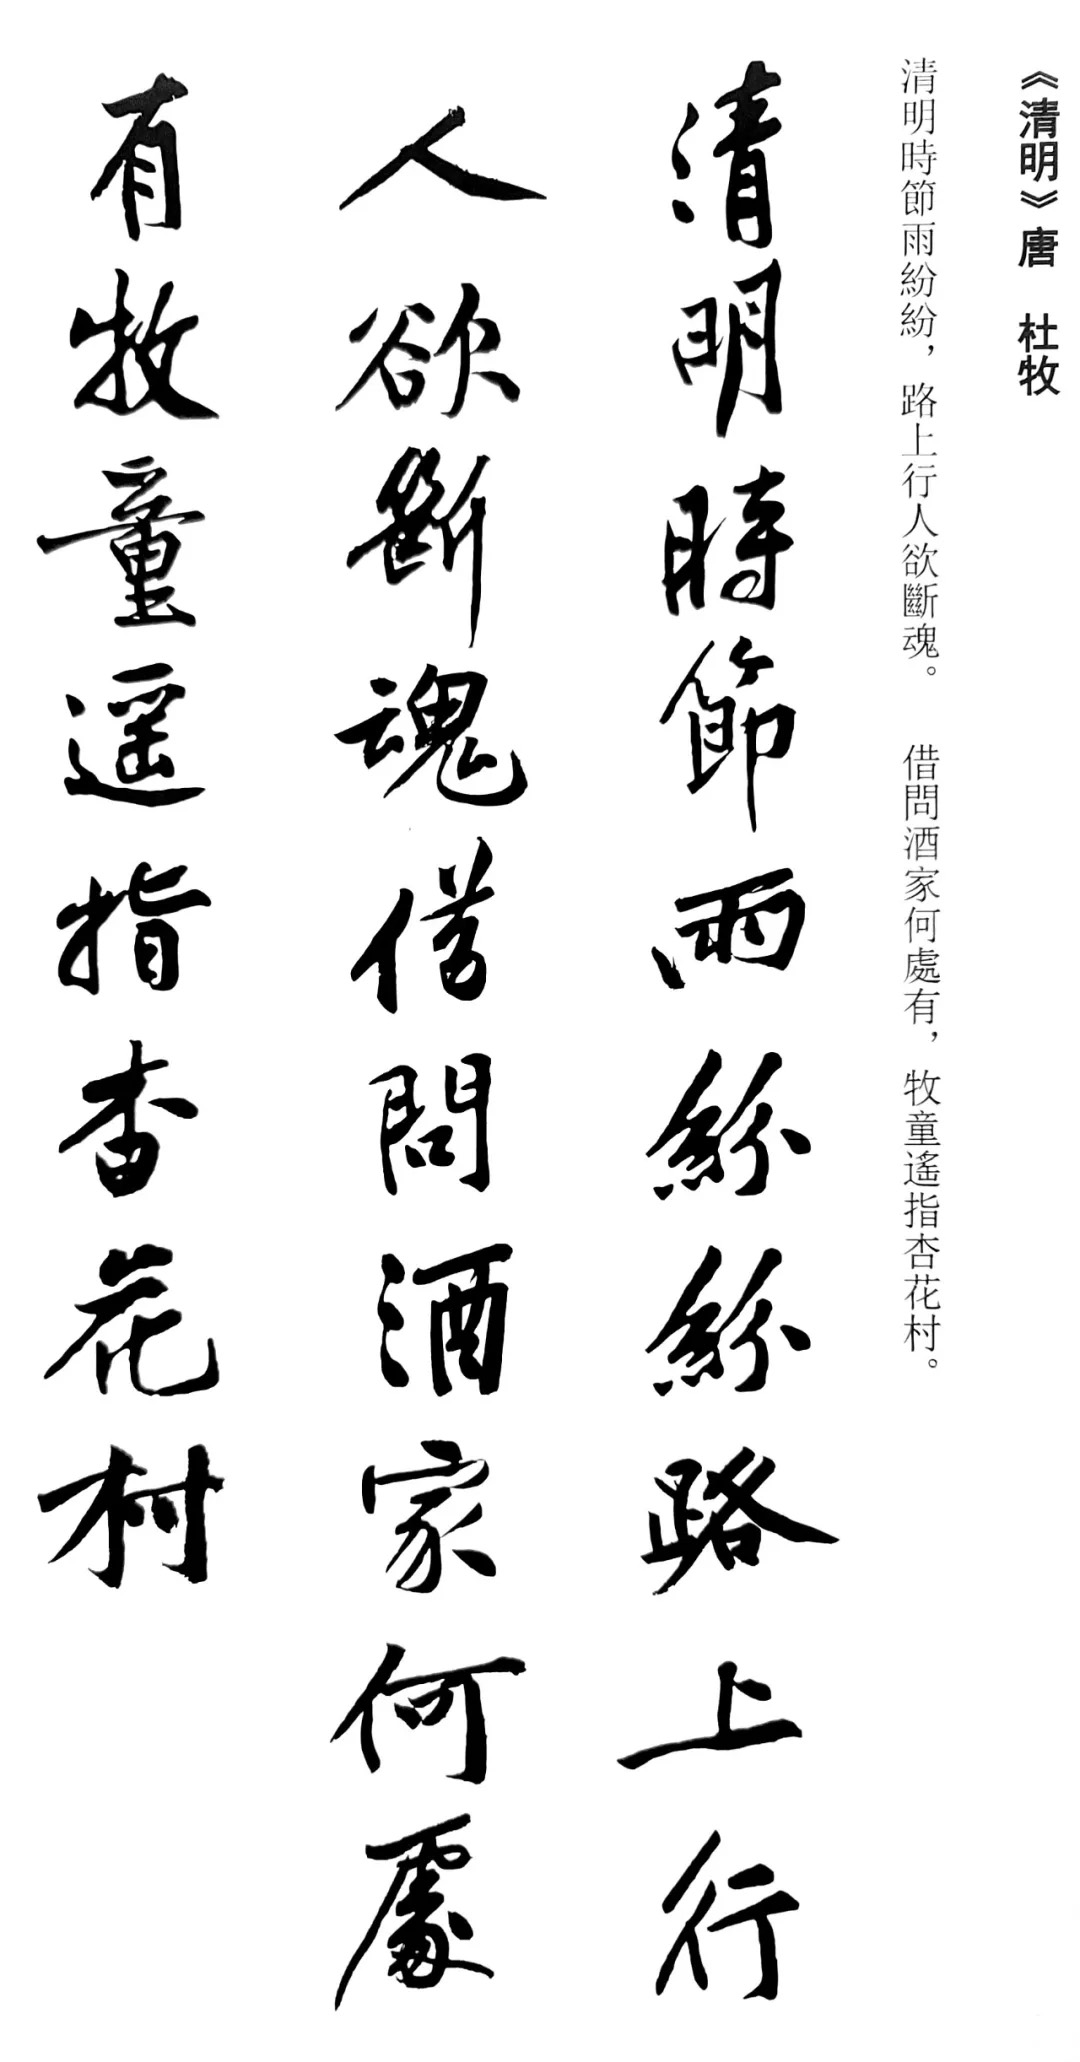 《清明》唐　杜牧
清明時節雨紛紛，路上行人欲斷魂。　借問酒家何處有，牧童遙指杏花村。
清明時節雨紛紛路上行
人欲斷魂借問酒家何處
有牧童遥指杏花村